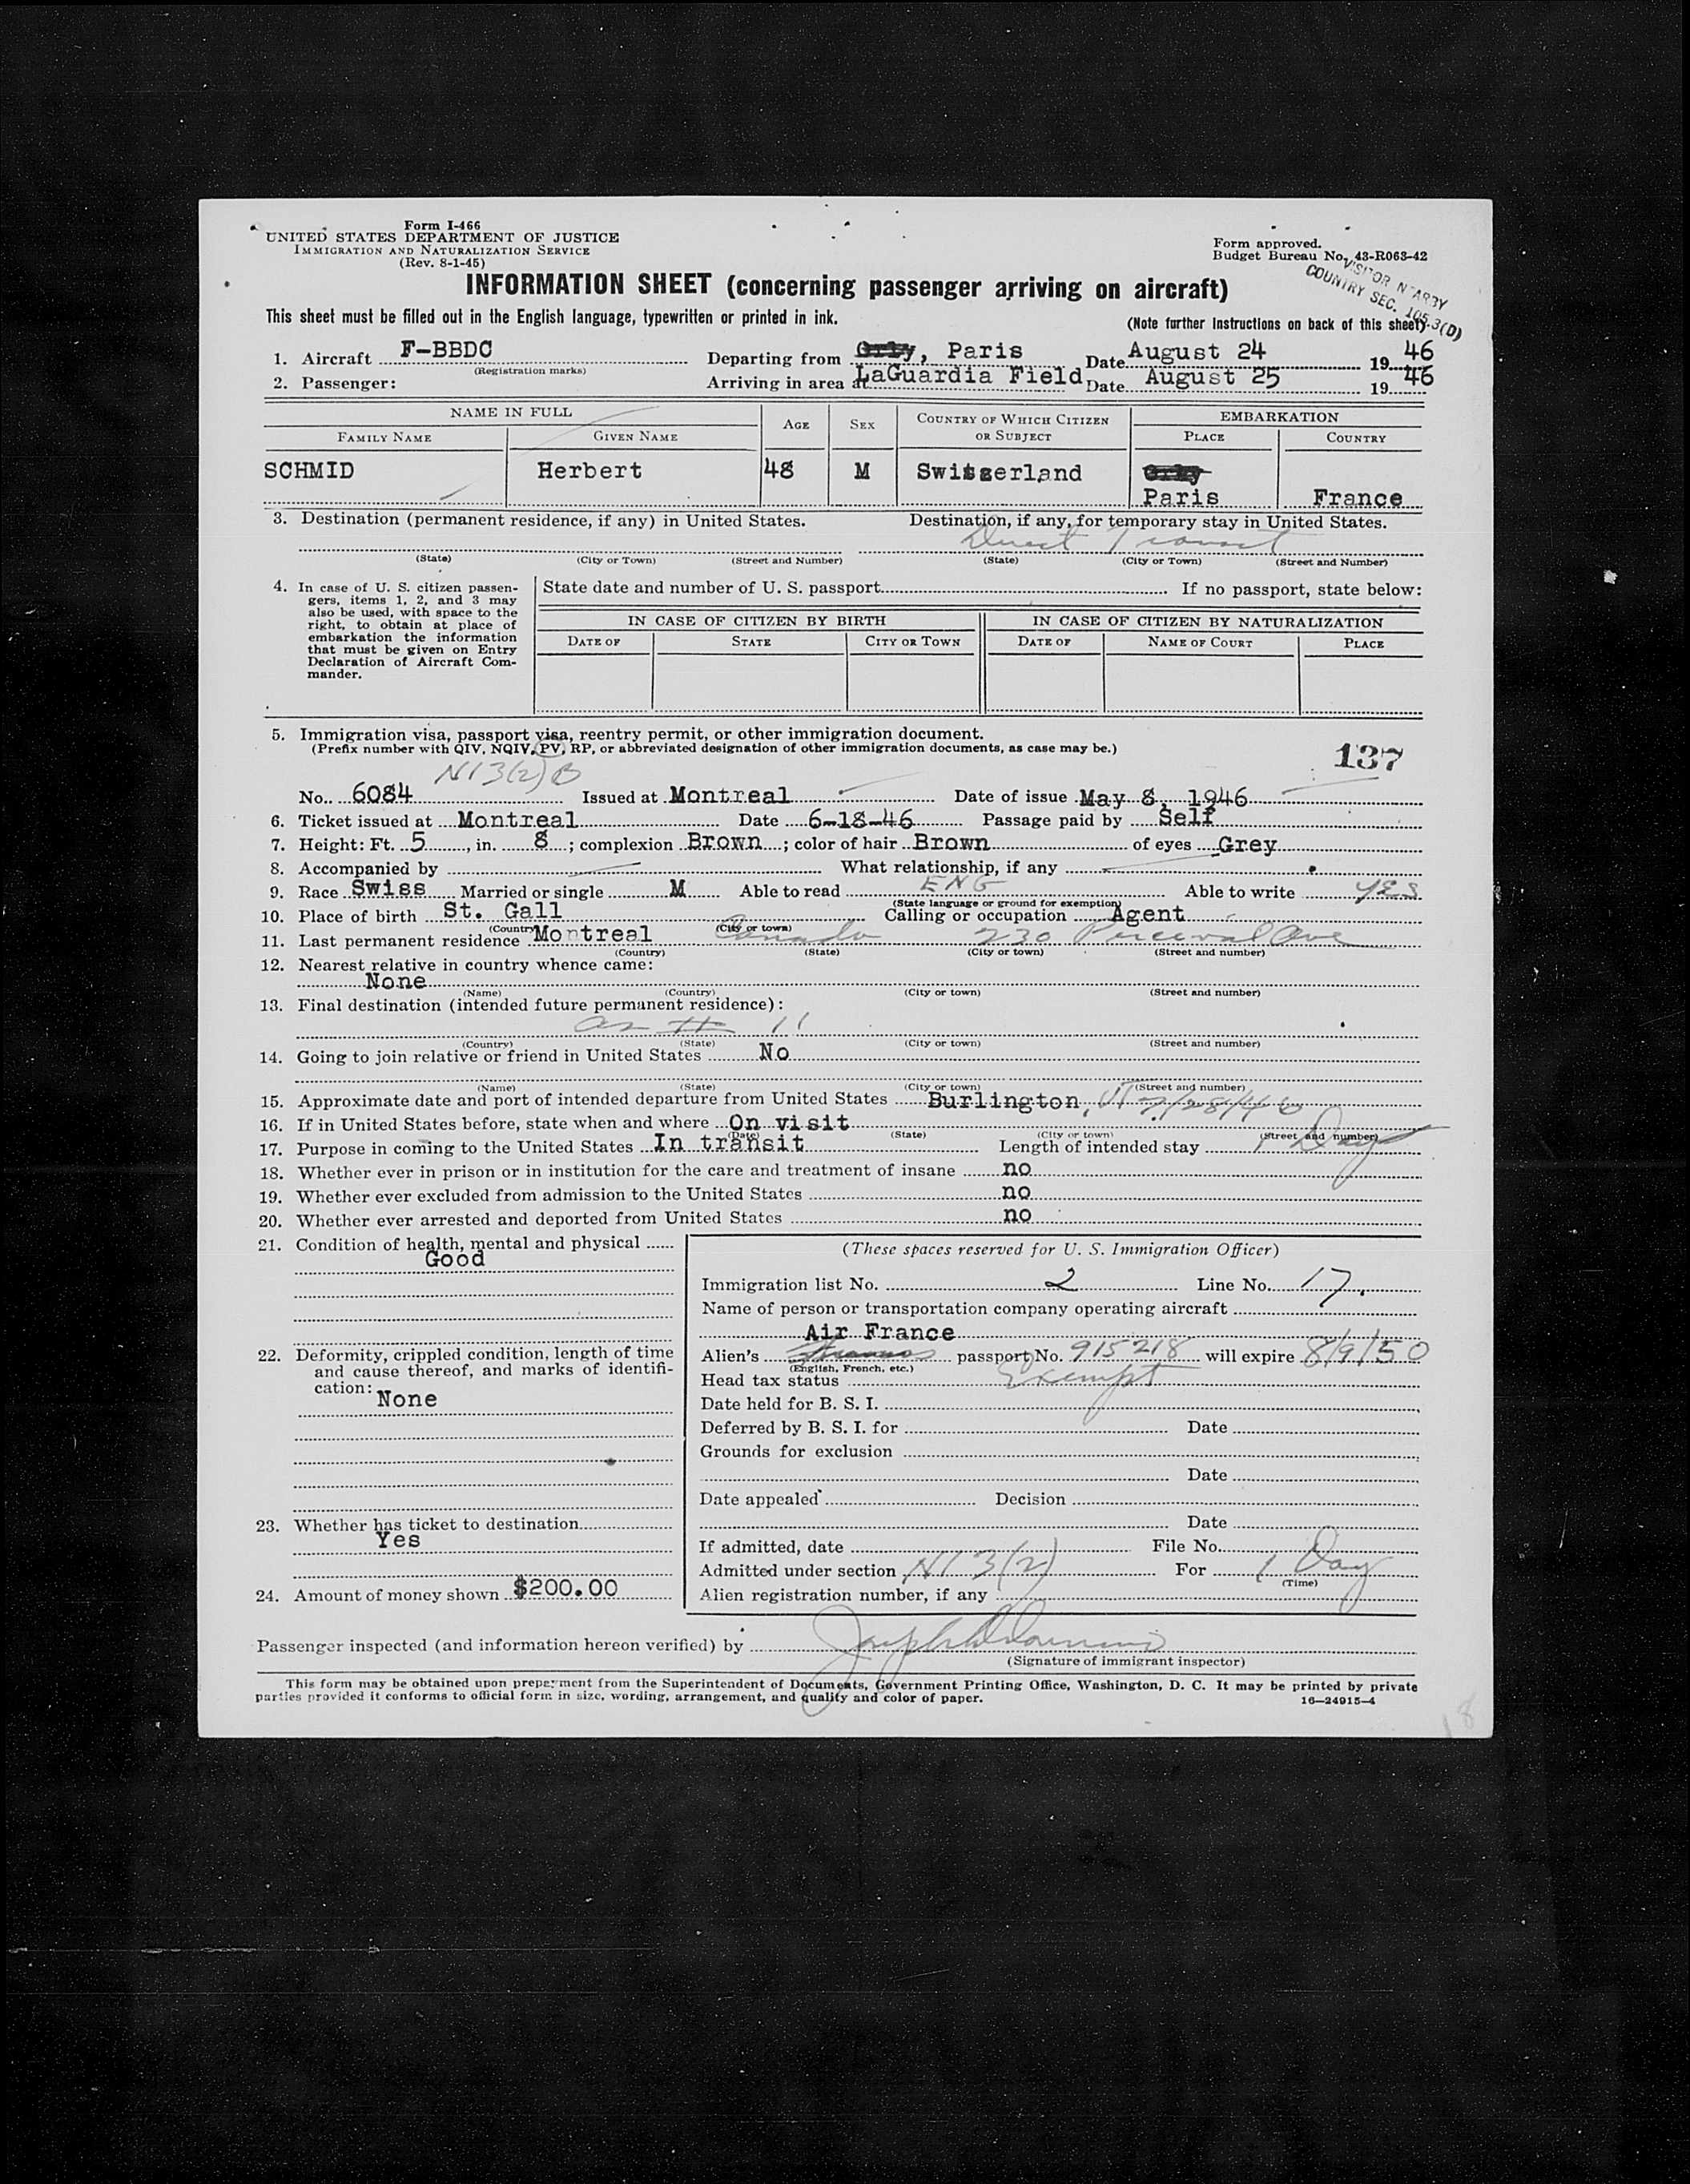 Form I-466
UNITED STATES DEPARTMENT OF JUSTICE
IMMIGRATION AND NATURALIZATION SERVICE
(Rev. 8-1-45)
Form approved.
Budget Bureau No. 43-R063-42
VISITOR NEARBY
COUNTRY SEC. 105.3(D)
INFORMATION SHEET (concerning passenger arriving on aircraft)
This sheet must be filled out in the English language, typewritten or printed in ink.
(Note further instructions on back of this sheet)
1. Aircraft F-BBDC Departing from Orly, Paris Date August 24 1946
(Registration marks)
2. Passenger: Arriving in area at LaGuardia Field Date August 25 1946
NAME IN FULL AGE SEX COUNTRY OF WHICH CITIZEN OR SUBJECT EMBARKATION
FAMILY NAME GIVEN NAME PLACE COUNTRY
SCHMID Herbert 48 M Switzerland Orly
Paris France
3. Destination (permanent residence, if any) in United States. Destination, if any, for temporary stay in United States.
Direct Transit
(State) (City or Town) (Street and Number) (State) (City or Town) (Street and Number)
4. In case of U. S. citizen passen-
gers, items 1, 2, and 3 may
also be used, with space to the
right, to obtain at place of
embarkation the information
that must be given on Entry
Declaration of Aircraft Com-
mander.
State date and number of U. S. passport If no passport, state below:
IN CASE OF CITIZEN BY BIRTH IN CASE OF CITIZEN BY NATURALIZATION
DATE OF STATE CITY OR TOWN DATE OF NAME OF COURT PLACE
5. Immigration visa, passport visa, reentry permit, or other immigration document.
(Prefix number with QIV, NQIV, PV, RP, or abbreviated designation of other immigration documents, as case may be.)
137
NI 3(2) B
No. 6084 Issued at Montreal Date of issue May 8, 1946
6. Ticket issued at Montreal Date 6-18-46 Passage paid by Self
7. Height: Ft. 5, in. 8; complexion Brown; color of hair Brown of eyes Grey
8. Accompanied by What relationship, if any
9. Race Swiss Married or single M Able to read ENG Able to write YES
(State language or ground for exemption)
10. Place of birth St. Gall Calling or occupation Agent
(Country) (City or town)
11. Last permanent residence Montreal Canada 230 Perceval Ave
(Country) (State) (City or town) (Street and number)
12. Nearest relative in country whence came:
None
(Name) (Country) (City or town) (Street and number)
13. Final destination (intended future permanent residence):
as # 11
(Country) (State) (City or town) (Street and number)
14. Going to join relative or friend in United States No
(Name) (State) (City or town) (Street and number)
15. Approximate date and port of intended departure from United States Burlington, VT
16. If in United States before, state when and where On visit
(Date) (State) (City or town) (Street and number)
17. Purpose in coming to the United States In transit Length of intended stay 1 Day
18. Whether ever in prison or in institution for the care and treatment of insane no
19. Whether ever excluded from admission to the United States no
20. Whether ever arrested and deported from United States no
21. Condition of health, mental and physical
Good
22. Deformity, crippled condition, length of time
and cause thereof, and marks of identifi-
cation:
None
23. Whether has ticket to destination
Yes
24. Amount of money shown $200.00
(These spaces reserved for U. S. Immigration Officer)
Immigration list No. 2 Line No. 17.
Name of person or transportation company operating aircraft
Air France
Alien's passport No. 915218 will expire 8/9/50
(English, French, etc.)
Head tax status Exempt
Date held for B. S. I.
Deferred by B. S. I. for Date
Grounds for exclusion
Date
Date appealed Decision
Date
If admitted, date File No.
Admitted under section NI 3(2) For 1 Day
(Time)
Alien registration number, if any
Passenger inspected (and information hereon verified) by
(Signature of immigrant inspector)
This form may be obtained upon prepayment from the Superintendent of Documents, Government Printing Office, Washington, D. C. It may be printed by private
parties provided it conforms to official form in size, wording, arrangement, and quality and color of paper.
16—24915-4
18